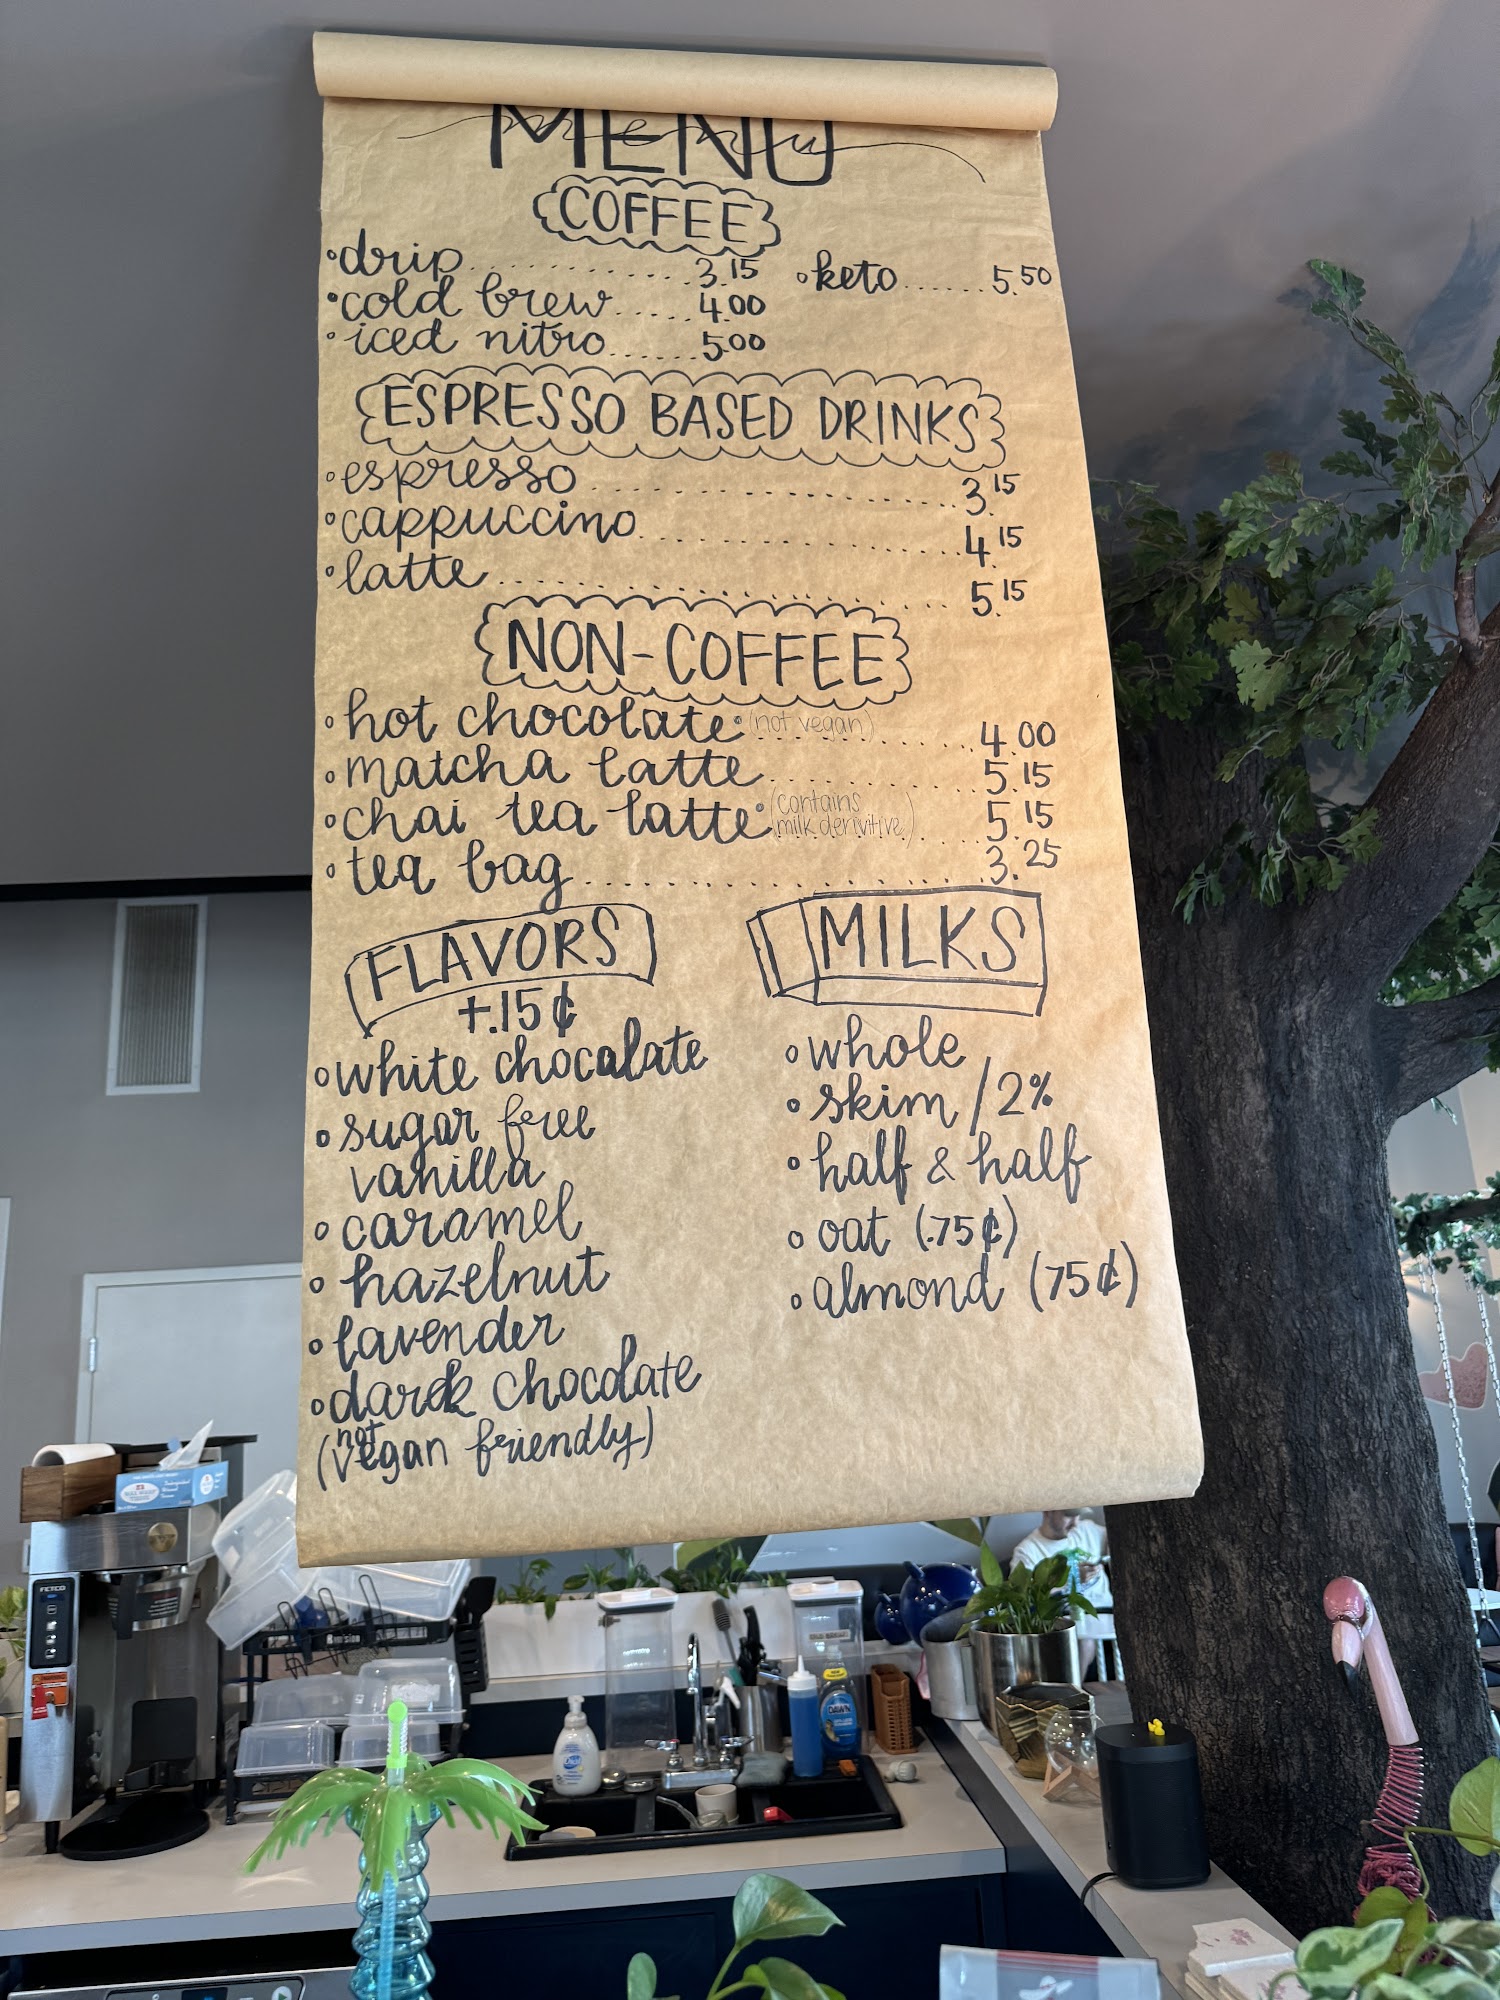 MENU
COFFEE
drip 3.15
cold brew 4.00
iced nitro 5.00
keto 5.50
ESPRESSO BASED DRINKS
espresso 3.15
cappuccino 4.15
latte 5.15
NON-COFFEE
hot chocolate (not vegan) 4.00
matcha latte 5.15
chai tea latte (contains milk derivitive) 5.15
tea bag 3.25
FLAVORS
+.15¢
white chocalate
sugar free
vanilla
caramel
hazelnut
lavender
dark chocolate
(not vegan friendly)
MILKS
whole
skim / 2%
half & half
oat (.75¢)
almond (75¢)
FETCO
DAWN